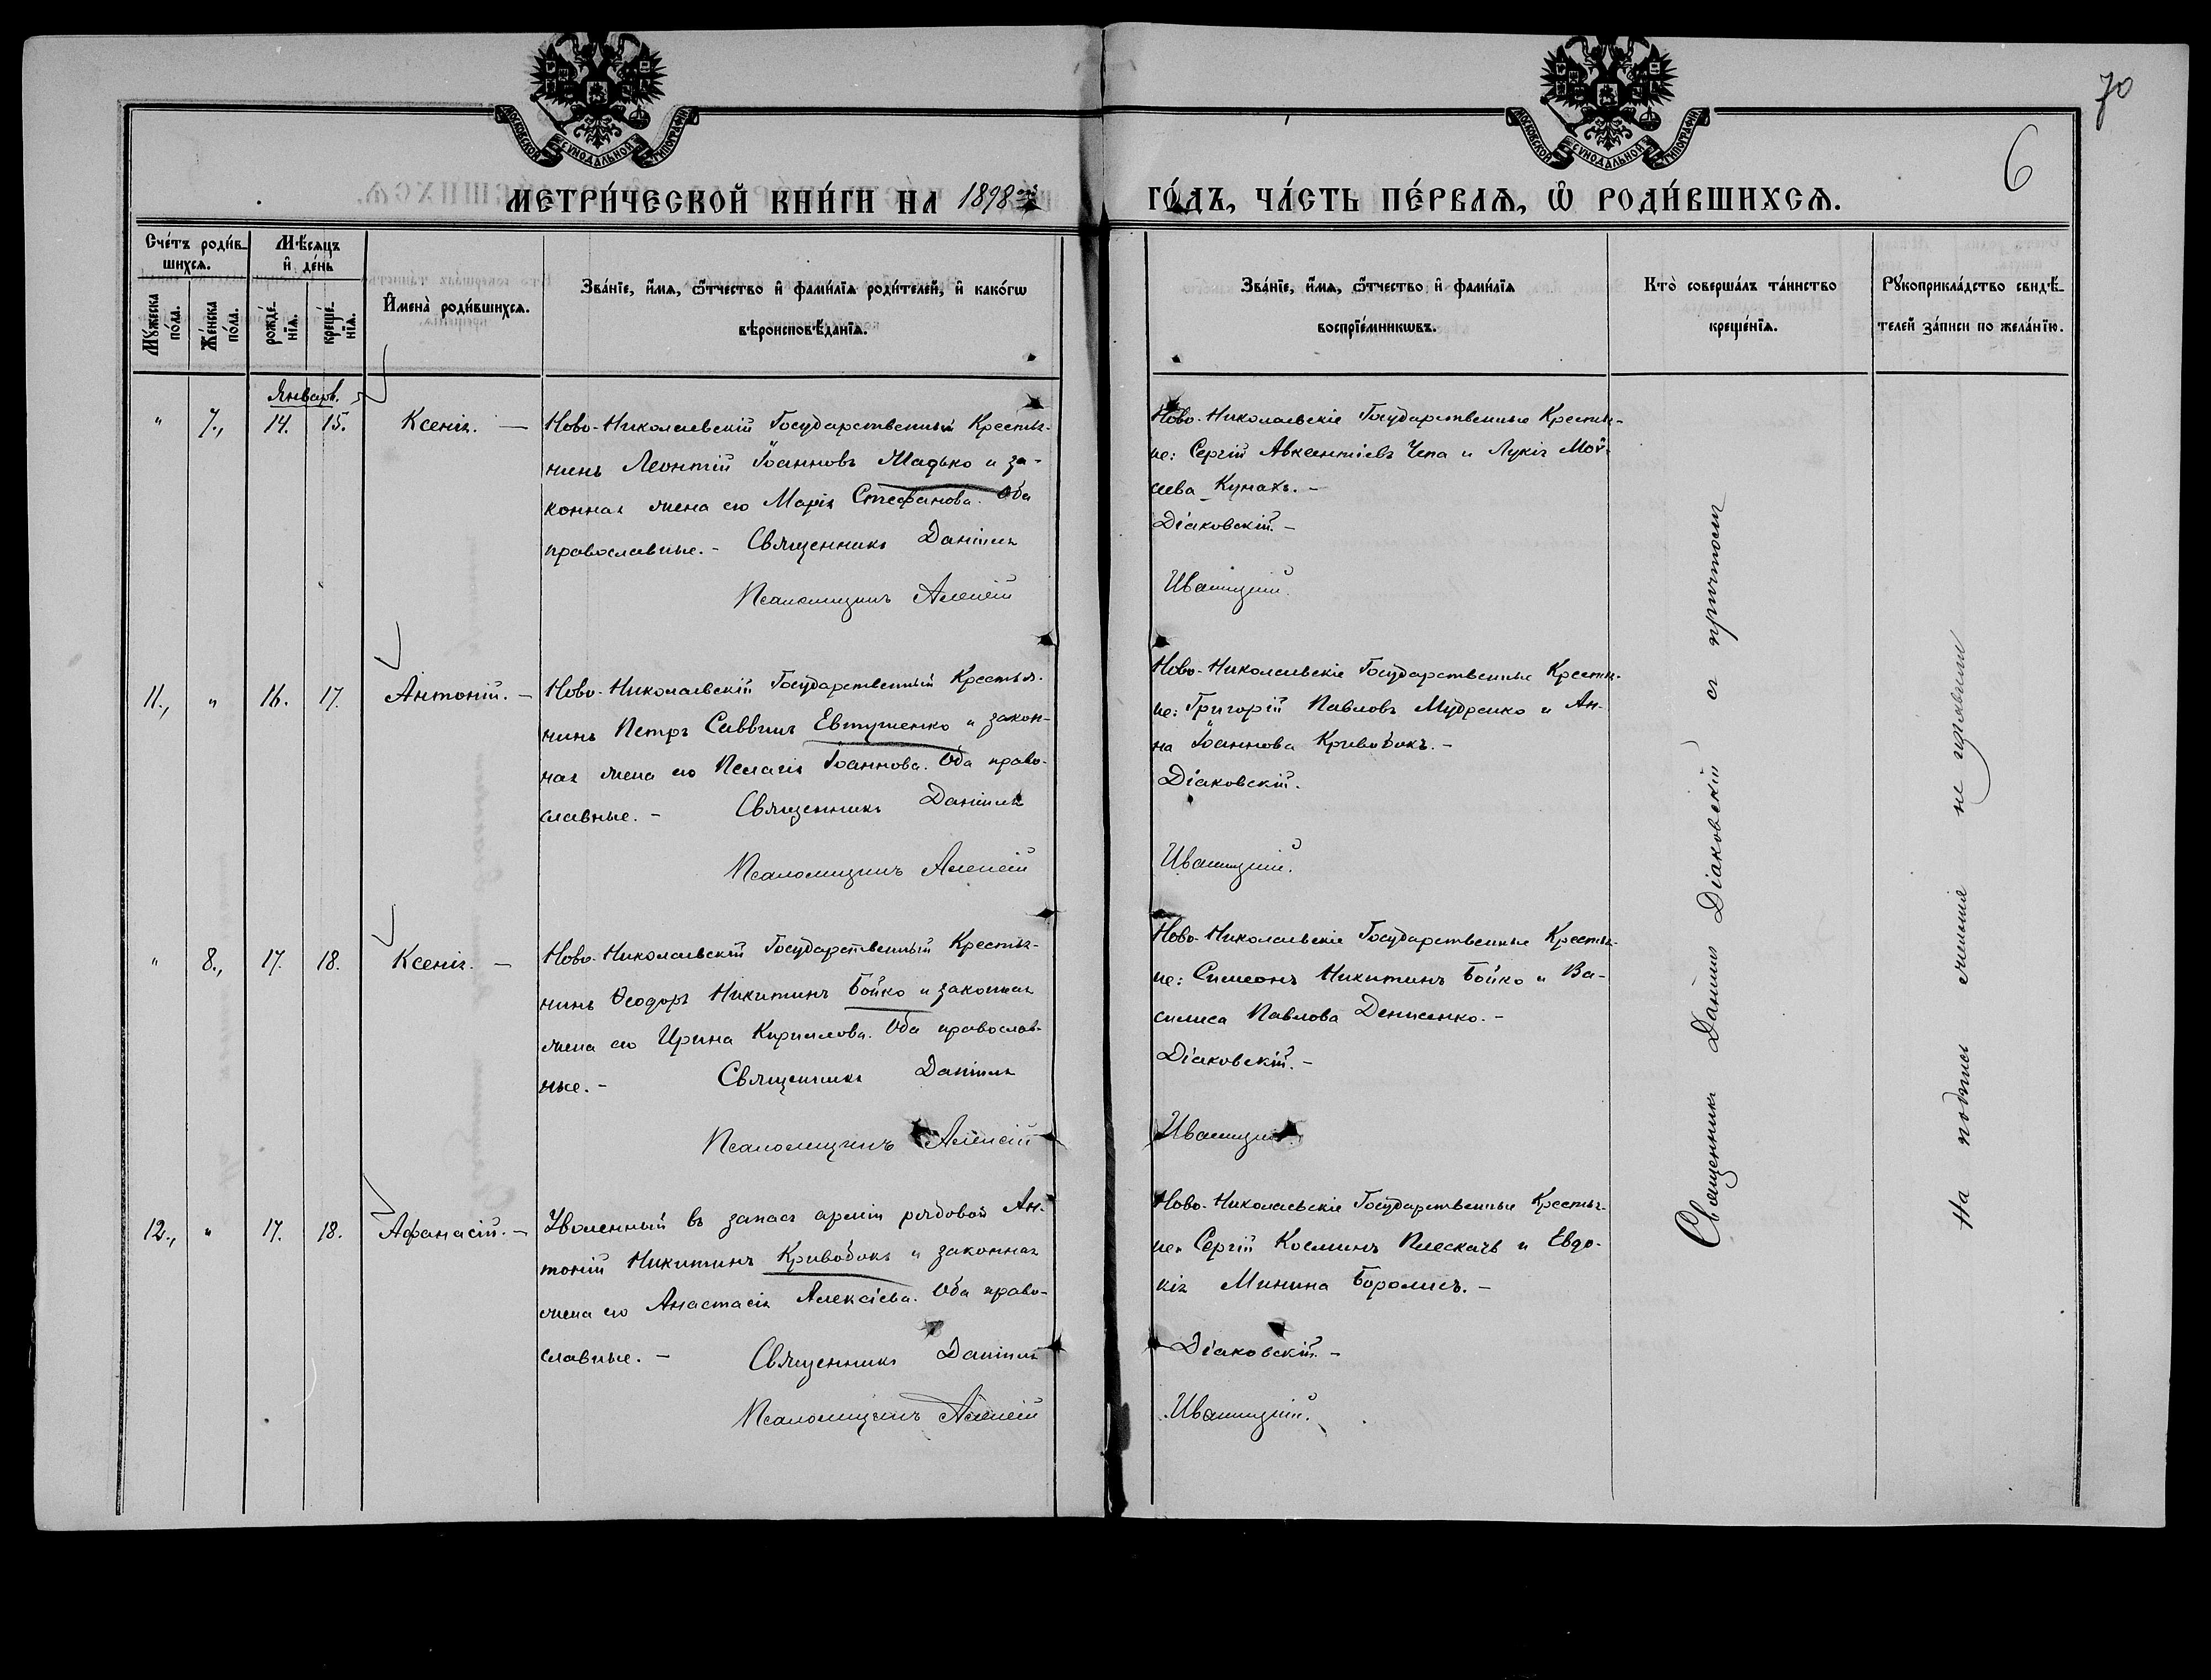 70
6
МОСКОВСКОЙ СѴНОДАЛЬНОЙ ТИПОГРАФІИ
МОСКОВСКОЙ СѴНОДАЛЬНОЙ ТИПОГРАФІИ
МЕТРИ́ЧЕСКОЙ КНИ́ГИ НА 1898ой ГО́ДЪ, ЧА́СТЬ ПЕ́РВАѦ, Ѡ҆ РОДИ́ВШИХСѦ.
Сче́тъ роди́в-
шихсѧ.
Мѣ́сѧцъ
и҆ де́нь
Мꙋ́жеска
по́ла.
Же́нска
по́ла.
рожде́-
нїѧ.
креще́-
нїѧ.
И҆мена̀ роди́вшихсѧ.
Зва́нїе, и҆́мѧ, ѻ҆́тчество и҆ фами́лїѧ роди́телей, и҆ како́гѡ
вѣроисповѣ́данїѧ.
Зва́нїе, и҆́мѧ, ѻ҆́тчество и҆ фами́лїѧ
воспрїе́мникѡвъ.
Кто̀ соверша́лъ та́инство
креще́нїѧ.
Рꙋкоприкла́дство свидѣ́-
телей за́писи по жела́нїю.
Январь.
" 7., 14. 15. Ксенія. —
Ново-Николаевскій Государственный Крестья-
нинъ Леонтій Іоанновъ Мадько и за-
конная жена его Марія Стефанова. Оба
православные. - Священникъ Даніилъ
Псаломщикъ Алексій
Ново-Николаевскіе Государственные Крестья-
не: Сергій Авксентіевъ Чепа и Лукія Мой-
сеева Кунахъ. -
Діаковскій. -
Ивашицкій.
11., " 16. 17. Антоній. —
Ново-Николаевскій Государственный Крестья-
нинъ Петръ Саввинъ Евтушенко и закон-
ная жена его Пелагія Іоаннова. Оба право-
славные. - Священникъ Даніилъ
Псаломщикъ Алексій
Ново-Николаевскіе Государственные Крестья-
не: Григорій Павловъ Мудренко и Ан-
на Іоаннова Кривобокъ. -
Діаковскій.
Ивашицкій.
" 8., 17. 18. Ксенія. —
Ново-Николаевскій Государственный Крестья-
нинъ Ѳеодоръ Никитинъ Бойко и законная
жена его Ирина Кириллова. Оба православ-
ные. - Священникъ Даніилъ
Псаломщикъ Алексій
Ново-Николаевскіе Государственные Крестья-
не: Симеонъ Никитинъ Бойко и Ва-
силиса Павлова Денисенко. -
Діаковскій. -
Ивашицкій.
12., " 17. 18. Афанасій. —
Уволенный въ запасъ арміи рядовой Ан-
тоній Никитинъ Кривобокъ и законная
жена его Анастасія Алексіева. Оба право-
славные. - Священникъ Даніилъ
Псаломщикъ Алексій
Ново-Николаевскіе Государственные Крестья-
не: Сергій Косминъ Плескачъ и Евдо-
кія Минина Боролисъ. -
Діаковскій. -
Ивашицкій.
Священникъ Даніилъ Діаковскій съ причтомъ
На подпись желанія не изъявили